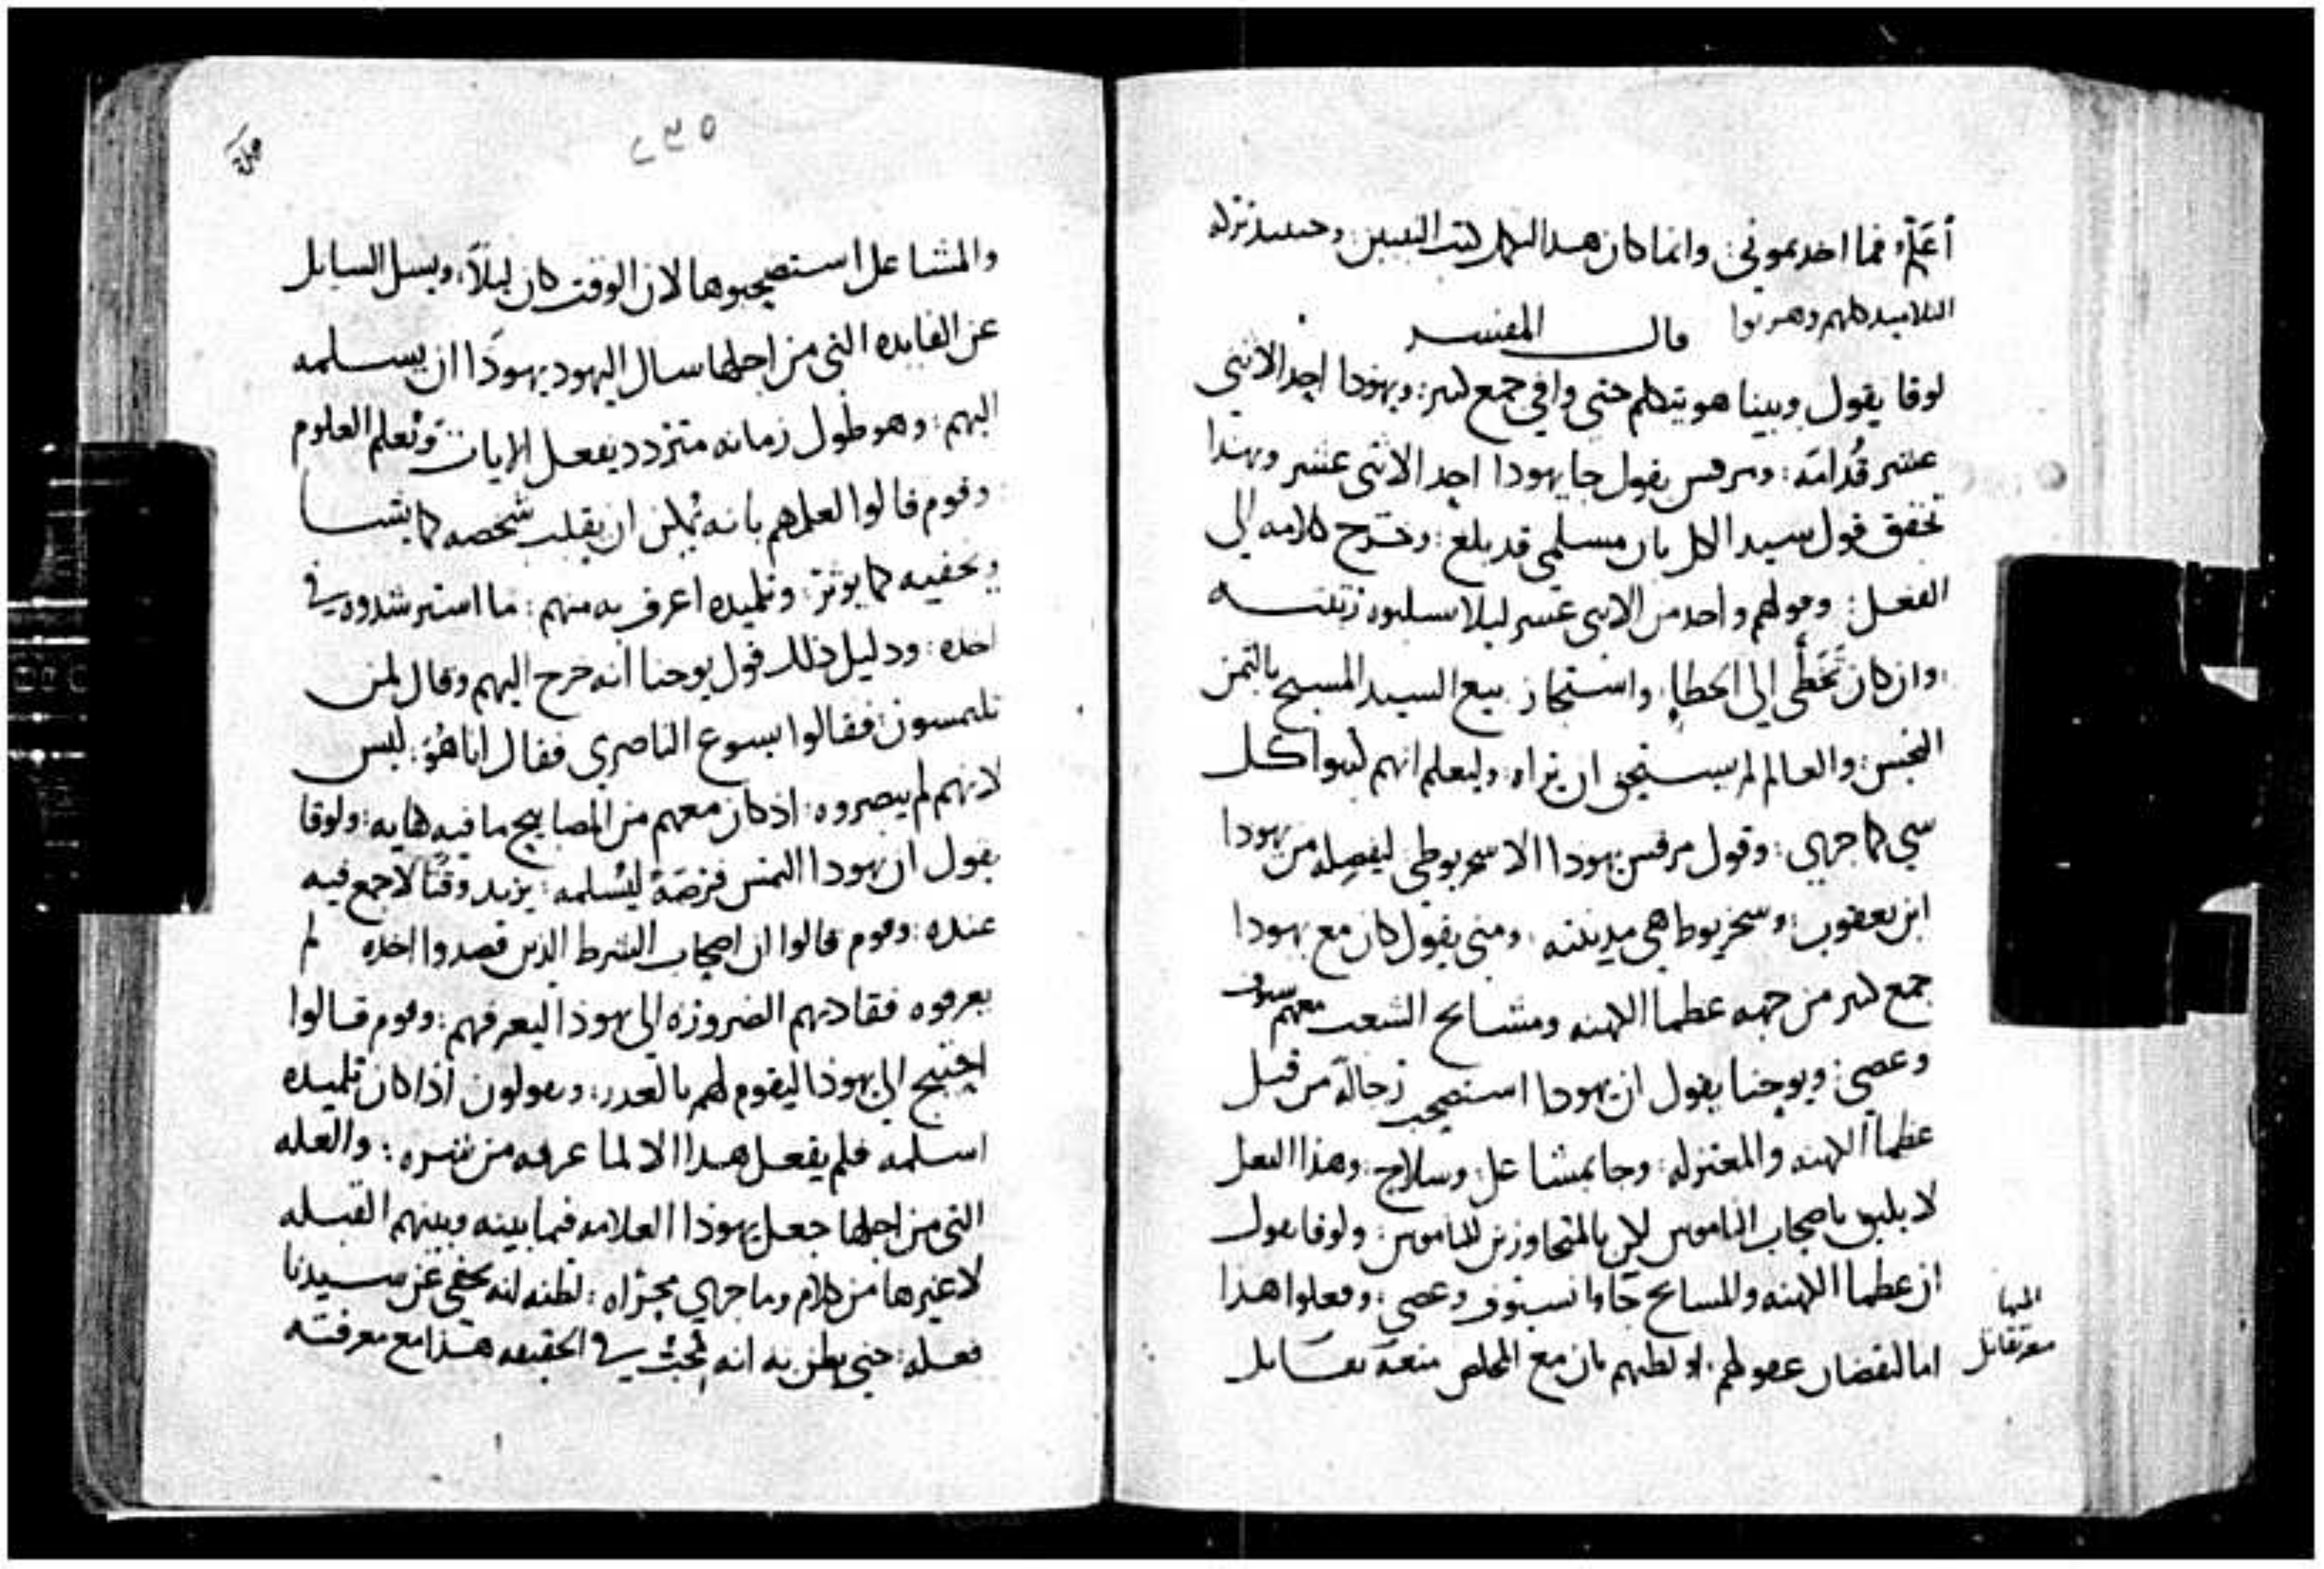 أعلم فما اخدىمونى وانما كان هدا لتكمل كتب النبيين وحينيد تركه
التلاميد كلهم وهربوا قال المفسر
لوقا يقول وبينا هو يتكلم حتى وافى جمع كثير ويهودا احد الاثنى
عشر قدامه ومرقس يقول جا يهودا احد الاثنى عشر وبهذا
تحقق قول سيد الكل بان مسلمى قد بلغ وخرج كلامه الى
الفعل وقولهم واحد من الاثنى عشر ليلا يسلبوه رتبته
وان كان تخطى الى الخطا واستجاز بيع السيد المسيح بالثمن
النجس والعالم لم يستحق ان يراه وليعلم انهم كتبوا كل
شى كما جرى وقول مرقس يهودا الاسخريوطى ليفصله من يهودا
ابن يعقوب وسخريوطا هى مدينته ومتى يقول كان مع يهودا
جمع كثير من جهه عظما الكهنه ومشايخ الشعب معهم سيوف
وعصى ويوحنا يقول ان يهودا استصحب رجاله من قبل
عظما الكهنه والمعتزله وجا بمشاعل وسلاح وهذا الفعل
لا يليق باصحاب الناموس لكن بالمتجاوزين للناموس ولوقا يقول
ان عظما الكهنه والمشايخ جاوا بسيوف وعصى وفعلوا هذا
اما لنقصان عقولهم او لظنهم بان مع المخلص منعه تقابل
٢٣٥
والمشاعل استصحبوها لان الوقت كان ليلا ويسل السايل
عن الفايده التى من اجلها سال اليهود يهودا ان يسلمه
اليهم وهو طول زمانه متردد يفعل الايات ويعلم العلوم
وقوم قالوا لعلمهم بانه يمكن ان يقلب شخصه كما يشا
ويخفيه كما يوثر وتلميده اعرف به منهم ما استرشدوه فى
اخده ودليل ذلك قول يوحنا انه خرج اليهم وقال لمن
تلتمسون فقالوا يسوع الناصرى فقال انا هو ليس
لانهم لم يبصروه اذ كان معهم من المصابيح ما فيه كفايه ولوقا
يقول ان يهودا التمس فرصة ليسلمه يريد وقتا لا جمع فيه
عنده وقوم قالوا ان اصحاب الشرط الذين قصدوا اخده لم
يعرفوه فقادتهم الضروره الى يهوذا ليعرفهم وقوم قالوا
احتيج الى يهوذا ليقوم لهم بالعدر ويقولون اذا كان تلميده
اسلمه فلم يفعل هدا الا لما عرفه من شره والعله
التى من اجلها جعل يهوذا العلامه فيما بينه وبينهم القبله
لا غيرها من كلام وما جرى مجراه لظنه انه يخفى عن سيدنا
فعله حتى يظن به انه محب فى الحقيقه هذا مع معرفته